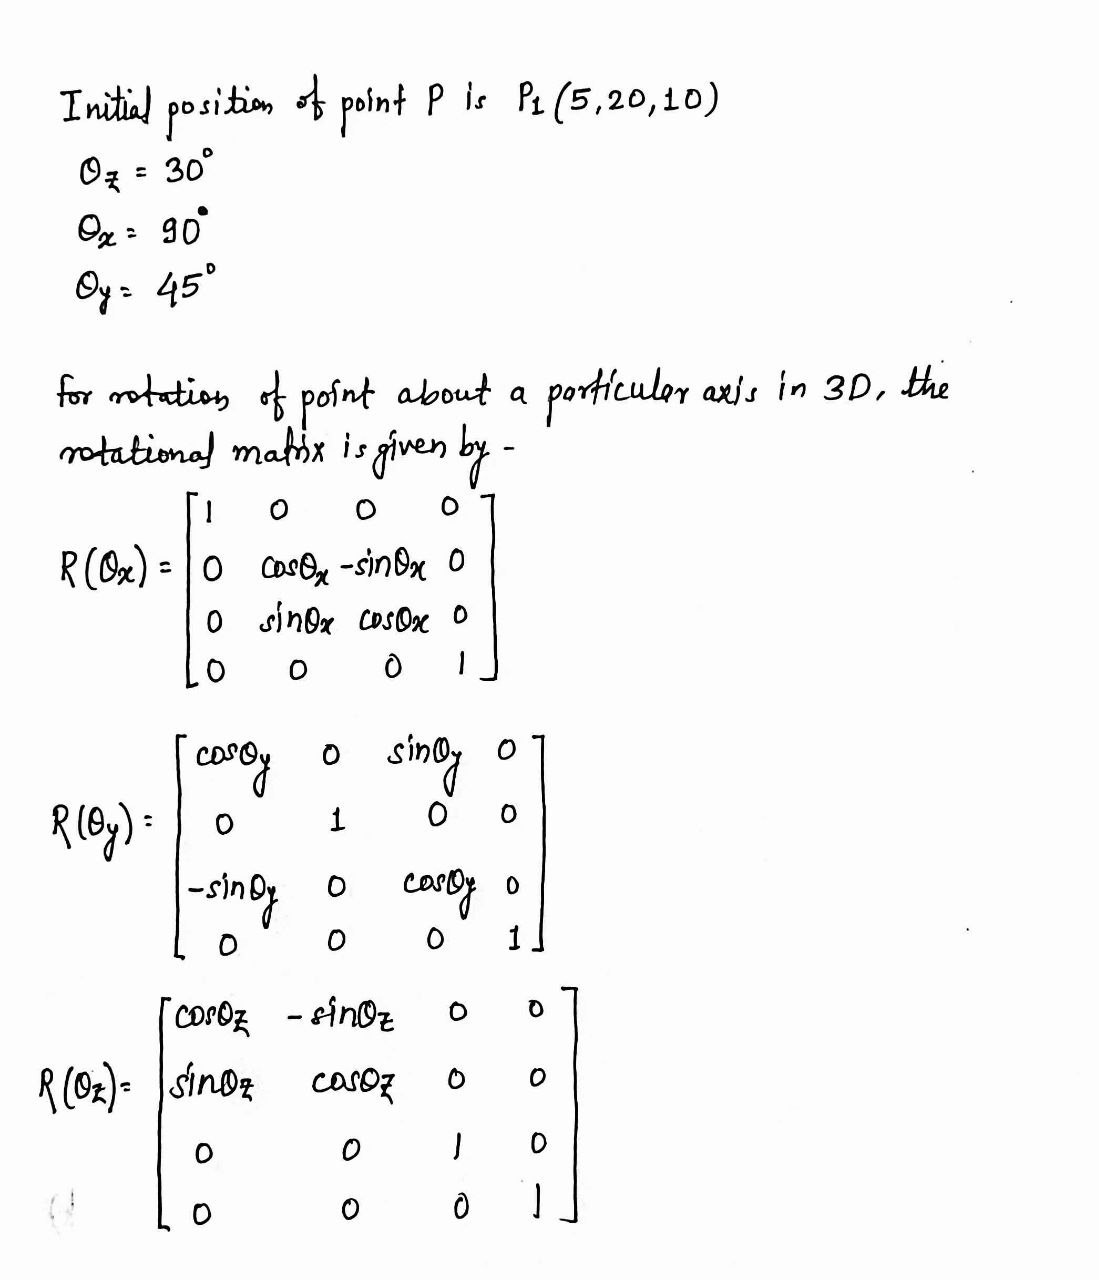 Initial position of point P is P1 (5,20,10)
θz = 30°
θx = 90°
θy = 45°
for rotation of point about a particular axis in 3D, the
rotational matrix is given by -
[1 0 0 0]
R(θx) = [0 cosθx -sinθx 0]
[0 sinθx cosθx 0]
[0 0 0 1]
[cosθy 0 sinθy 0]
R(θy) = [0 1 0 0]
[-sinθy 0 cosθy 0]
[0 0 0 1]
[cosθz -sinθz 0 0]
R(θz) = [sinθz cosθz 0 0]
[0 0 1 0]
[0 0 0 1]